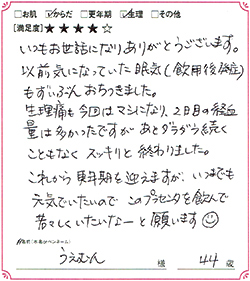 □お肌 ☑からだ □更年期 ☑生理 □その他
[満足度]★★★★☆
いつもお世話になりありがとうございます。
以前気になっていた眠気(飲用後症)
もずいぶんおちつきました。
生理痛も今回はマシになり、2日目の経血
量は多かったですが あとダラダラ続く
こともなく スッキリと終わりました。
これから更年期を迎えますが、いつまでも
元気でいたいので このプラセンタを飲んで
若々しくいたいなーと願います
お名前(お客様ペンネーム)
うえむん 様 44 歳